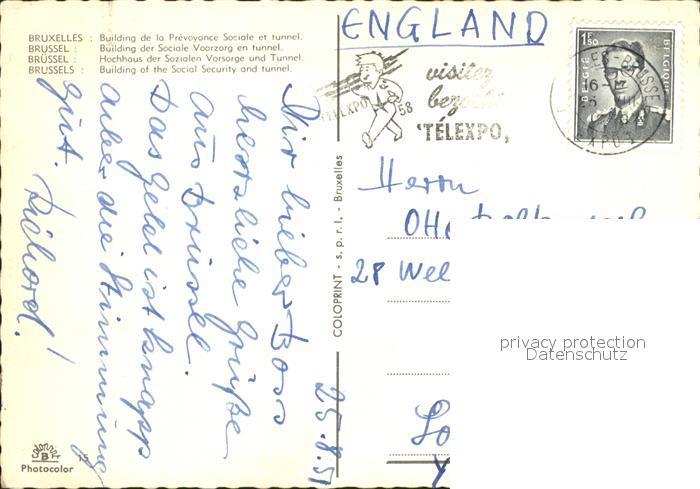 BRUXELLES : Building de la Prévoyance Sociale et tunnel.
BRUSSEL : Building der Sociale Voorzorg en tunnel.
BRÜSSEL : Hochhaus der Sozialen Vorsorge und Tunnel.
BRUSSELS : Building of the Social Security and tunnel.
ENGLAND
visitez
bezoekt
TÉLEXPO,
TELEXPO 58
1F50
BELGIE BELGIQUE
25.8.51
Mir lieber Boss
herzliche Grüße
aus Brüssel.
Das Geld ist knapp
aber die Stimmung
gut. Richard!
COLOPRINT - s.p.r.l. - Bruxelles
Herrn
28 Wel
Lo
privacy protection
Datenschutz
B 15
Photocolor